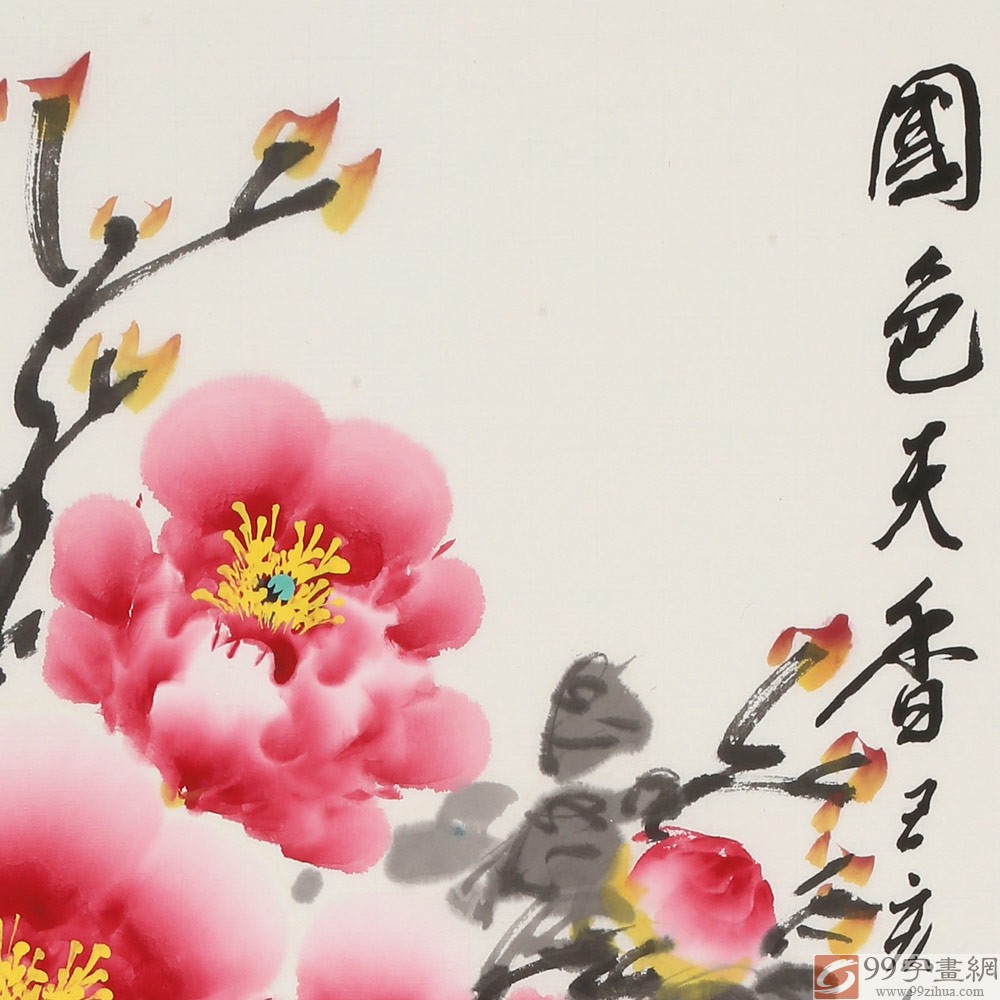 國色天香 己亥
99字畫網
www.99zihua.com